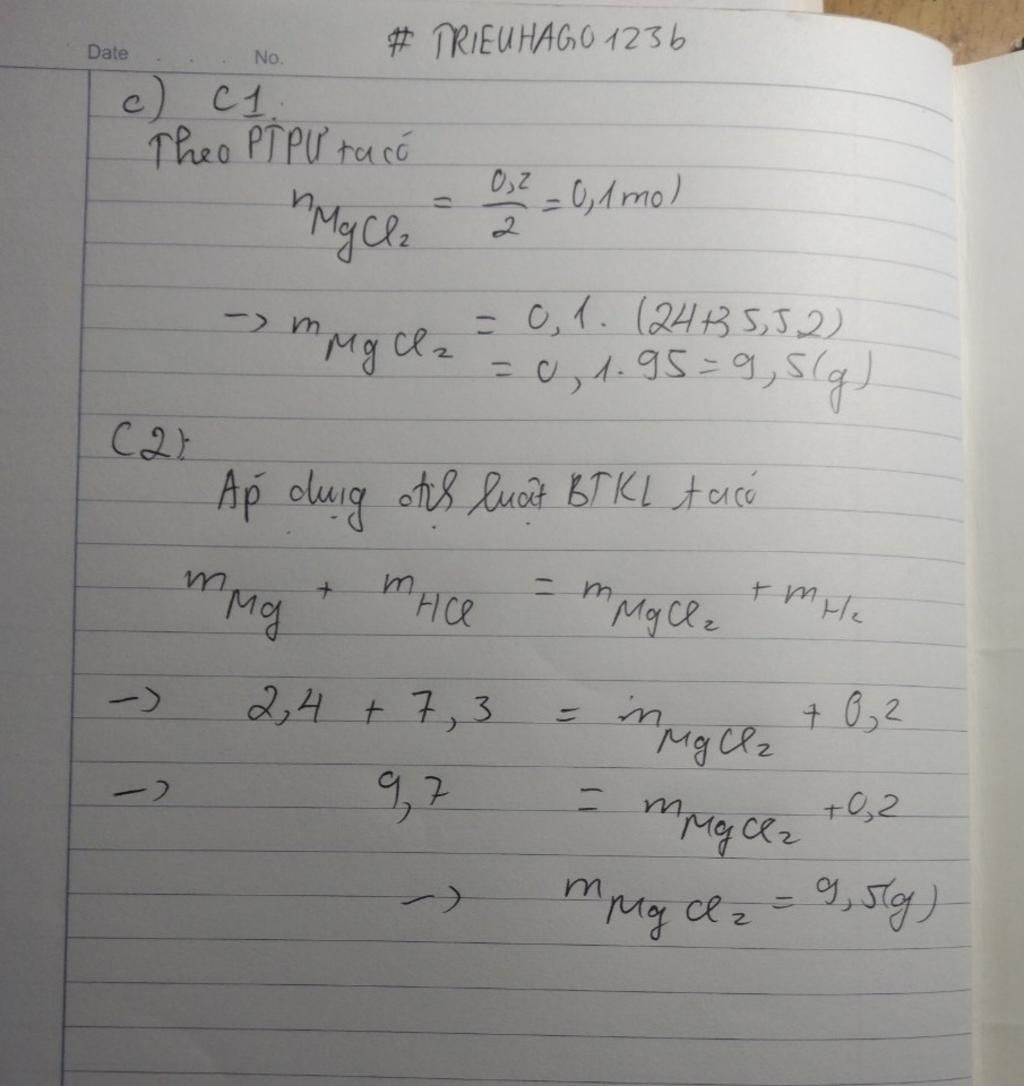 # TRIEUHAGO1236
Date . . . No.
c) C1.
Theo PTPƯ ta có
n MgCl₂ = 0,2/2 = 0,1 mol
-> m MgCl₂ = 0,1. (24+35,5.2)
= 0,1.95 = 9,5(g)
C2):
Áp dụng luật BTKL ta có
m Mg + m HCl = m MgCl₂ + m H₂
-> 2,4 + 7,3 = m MgCl₂ + 0,2
-> 9,7 = m MgCl₂ + 0,2
-> m MgCl₂ = 9,5(g)